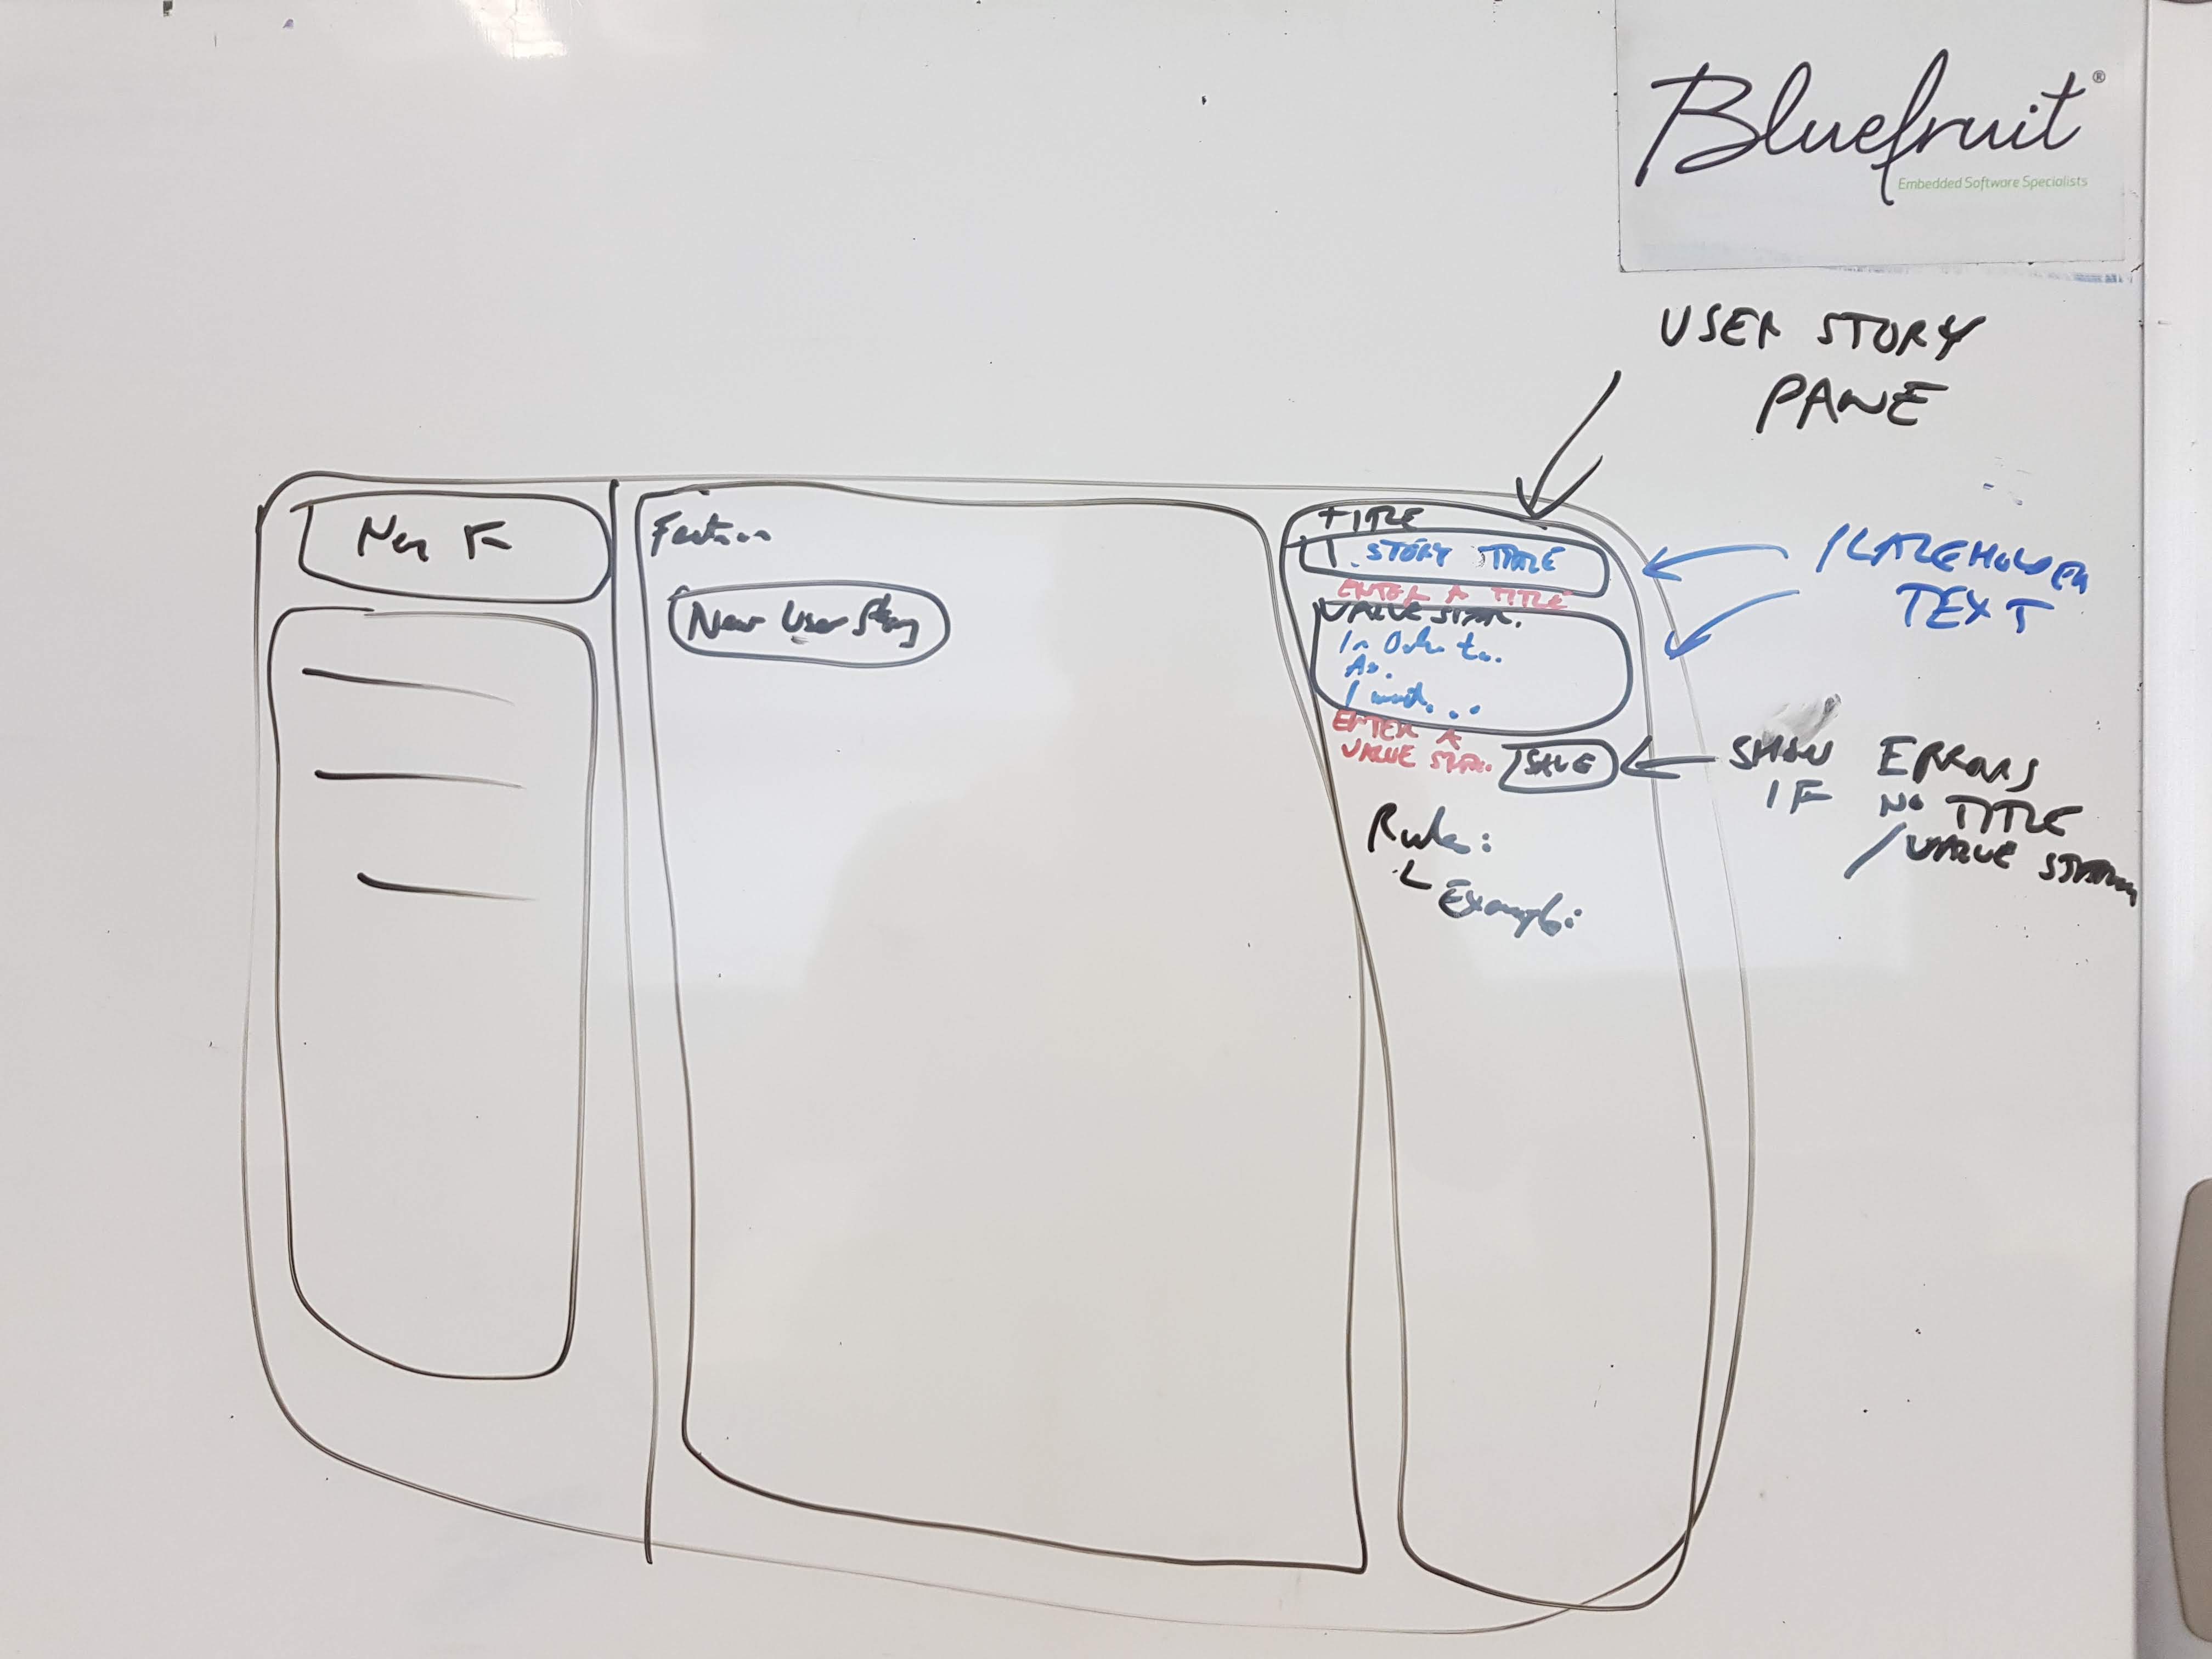 Bluefruit®
Embedded Software Specialists
USER STORY
PANE
New F
New User Story
TITLE
STORY TITLE
ENTER A TITLE
VALUE STAT.
In Order to..
As.
I want...
ENTER A
VALUE STAT.
SAVE
Rule:
Example:
PLACEHOLDER
TEXT
SHOW ERRORS
IF NO TITLE
/VALUE